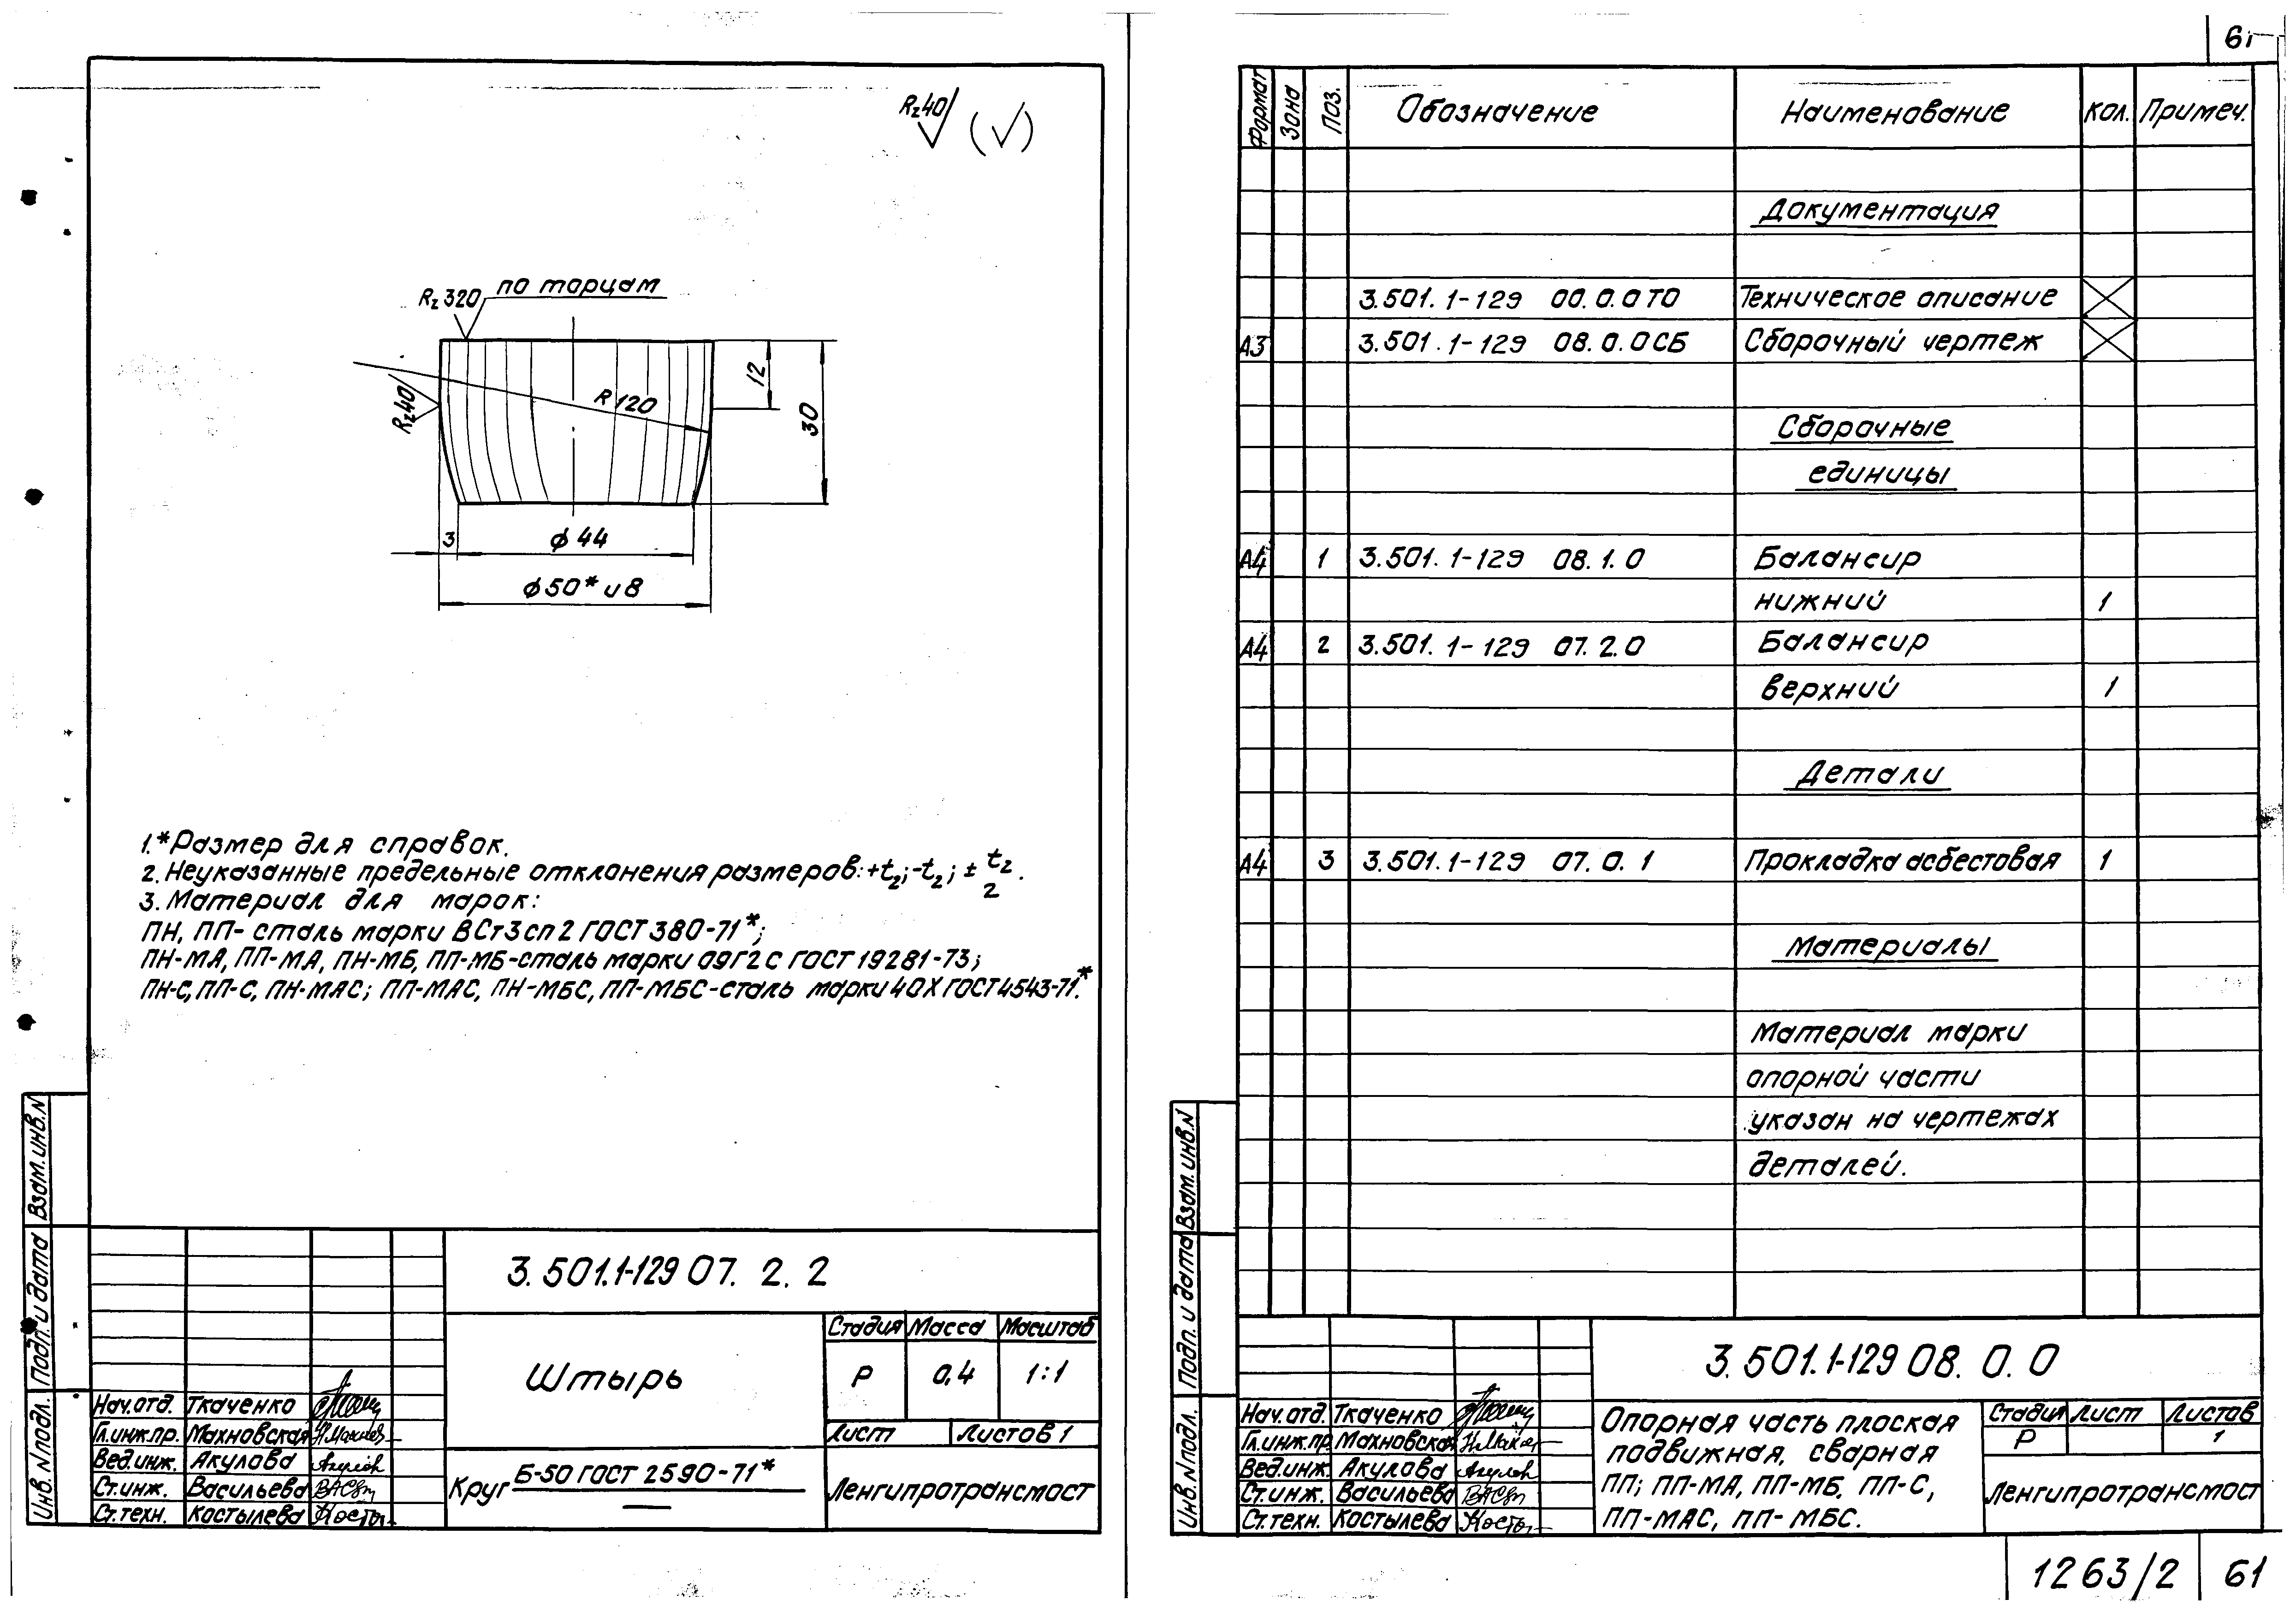 Rz40 (√)
Rz 320 по торцам
Rz40
R 120
12
30
3
ф 44
ф 50* и8
1.* Размер для справок.
2. Неуказанные предельные отклонения размеров: +t2; -t2; ± t2/2.
3. Материал для марок:
ПН, ПП- сталь марки ВСт3сп2 ГОСТ 380-71*;
ПН-МА, ПП-МА, ПН-МБ, ПП-МБ-сталь марки 09Г2С ГОСТ 19281-73;
ПН-С, ПП-С, ПН-МАС; ПП-МАС, ПН-МБС, ПП-МБС-сталь марки 40Х ГОСТ 4543-71.*
Взам. инв. N
Подп. и дата
Инв. N подл.
3.501.1-129 07. 2. 2
Штырь
Стадия Масса Масштаб
Р 0,4 1:1
Лист Листов 1
Нач.отд. Ткаченко
Гл.инж.пр. Махновская
Вед.инж. Акулова
Ст.инж. Васильева
Ст.техн. Костылева
Круг Б-50 ГОСТ 2590-71*
Ленгипротрансмост
61
Формат Зона Поз. Обозначение Наименование Кол. Примеч.
Документация
3.501. 1-129 00.0.0 ТО Техническое описание
А3 3.501. 1-129 08.0.0 СБ Сборочный чертеж
Сборочные
единицы
А4 1 3.501. 1-129 08.1.0 Балансир
нижний 1
А4 2 3.501. 1-129 07.2.0 Балансир
верхний 1
Детали
А4 3 3.501. 1-129 07.0.1 Прокладка асбестовая 1
Материалы
Материал марки
опорной части
указан на чертежах
деталей.
Взам. инв. N
Подп. и дата
Инв. N подл.
3.501.1-129 08. 0. 0
Нач.отд. Ткаченко
Гл.инж.пр. Махновская
Вед.инж. Акулова
Ст.инж. Васильева
Ст.техн. Костылева
Опорная часть плоская
подвижная, сварная
ПП; ПП-МА, ПП-МБ, ПП-С,
ПП-МАС, ПП-МБС.
Стадия Лист Листов
Р 1
Ленгипротрансмост
1263/2 61